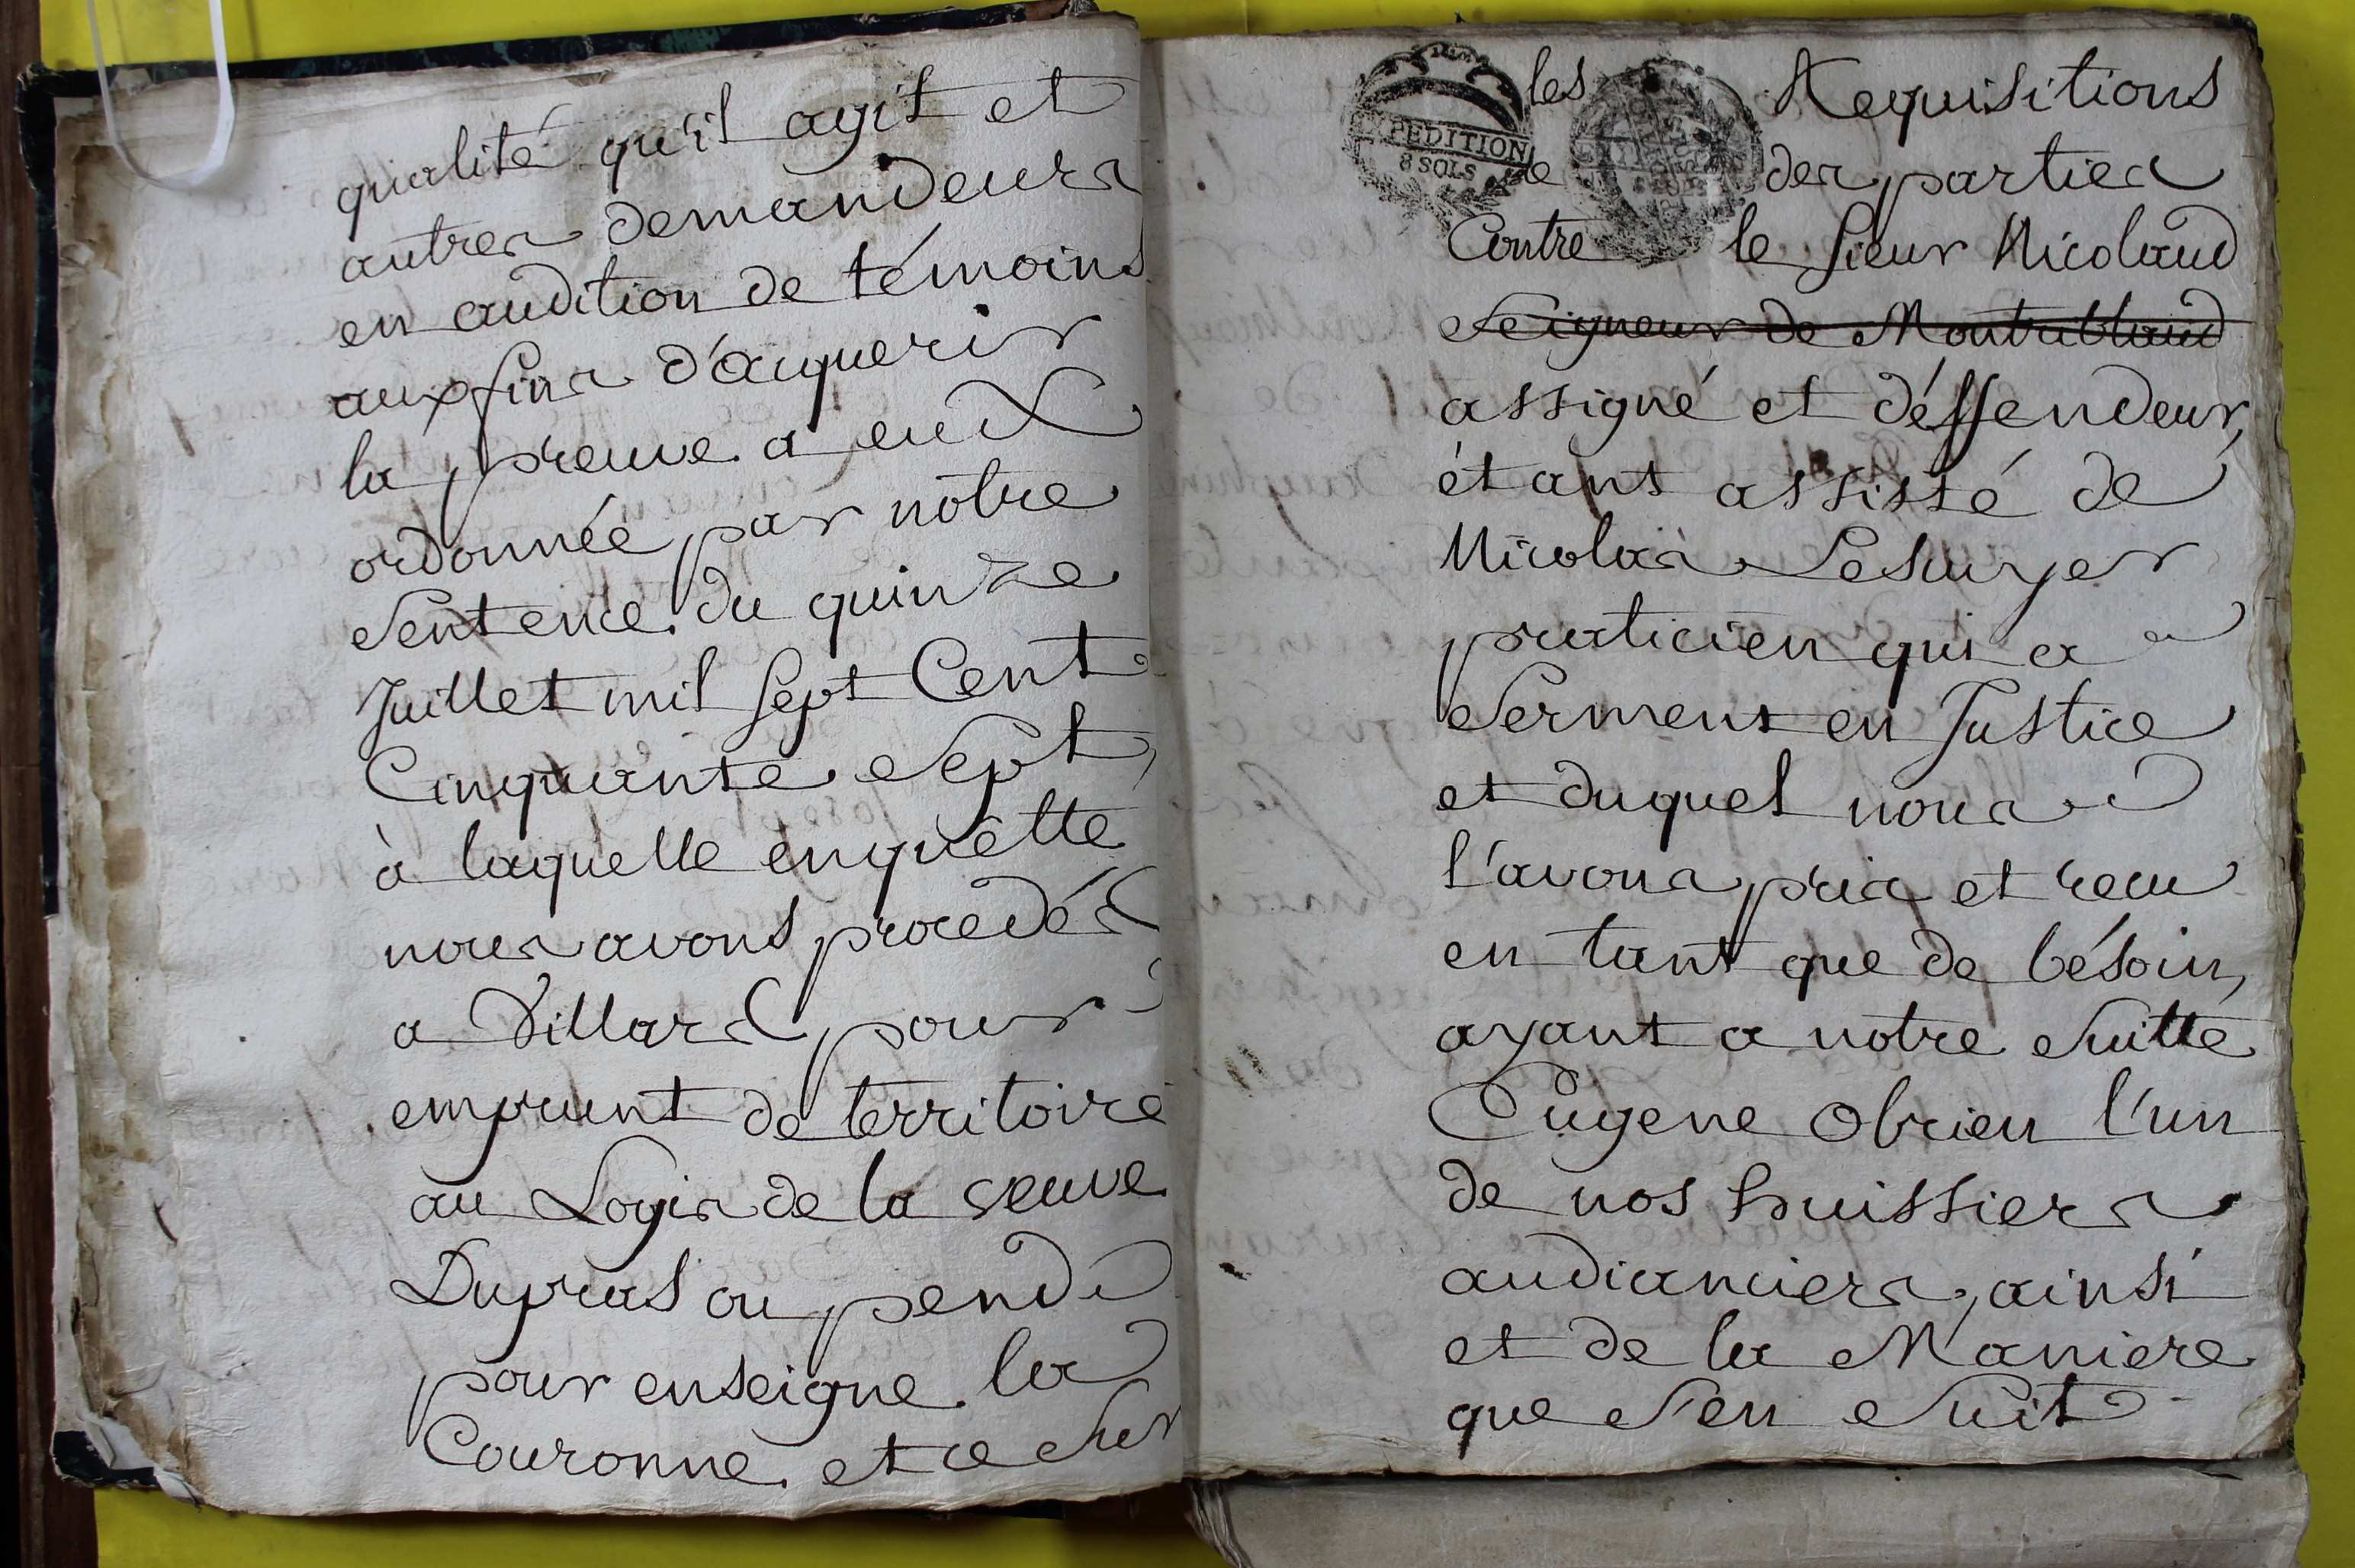 qualité qu'il agit et
autres demandeurs
en audition de témoins
aux fins d'acquerir
la preuve a eux
ordonnée par nôtre
Sentence du quinze
Juillet mil Sept Cent
Cinquante Sept,
à laquelle enquêtte
nous avons procédés
a Villars pour
emprunt de territoire
au Logis de la veuve
Dupras ou pend
pour enseigne la
Couronne et ce Sur
les Requisitions
des parties
Contre le Sieur Nicolaud
Seigneur de Montriblaud
assigné et déffendeur,
étant assisté de
Nicolas Lesuyer
praticien qui a
Serment en Justice
et duquel nous
l'avons pris et recu
en tant que de bésoin,
ayant a nôtre Suitte
Eugene Obrien l'un
de nos huissiers
audianciers, ainsi
et de la Maniere
que S'en Suit
EXPEDITION
8 SOLS